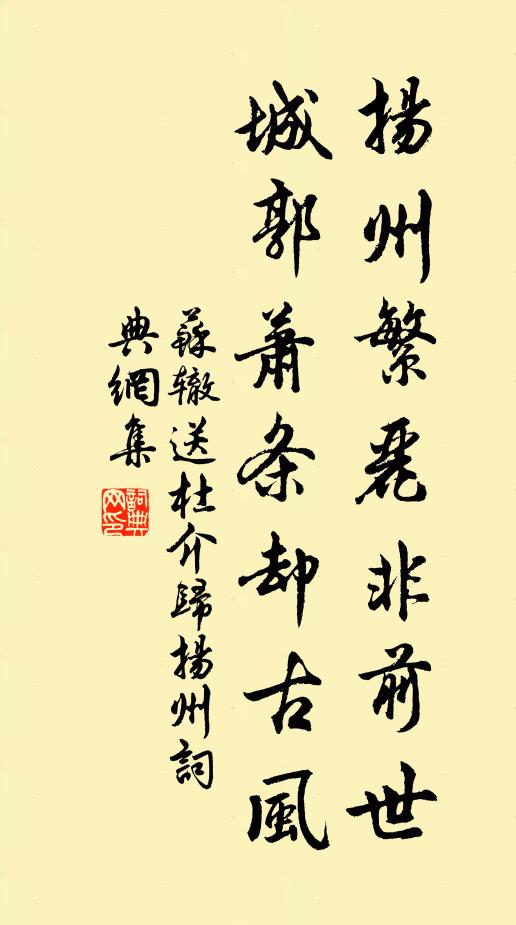 揚州繁麗非前世
城郭蕭条却古風
蘇辙送杜介歸揚州詞
典網集
詞典
网印